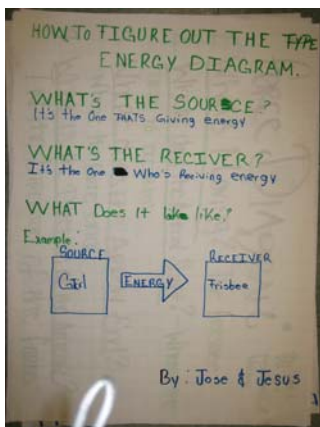 HOW TO FIGURE OUT THE TYPE
ENERGY DIAGRAM.
WHAT'S THE SOURCE?
It's the One THATS Giving energy
WHAT'S THE RECIVER?
It's the One Who's Reciving energy
WHAT Does It like?
Example:
SOURCE
ENERGY
RECEIVER
Frisbee
By: Jose & Jesus